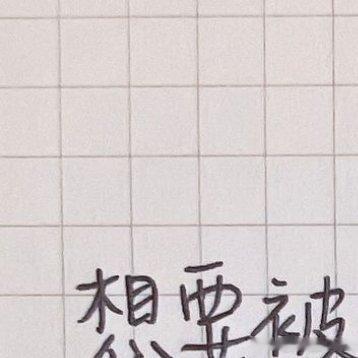 想要被